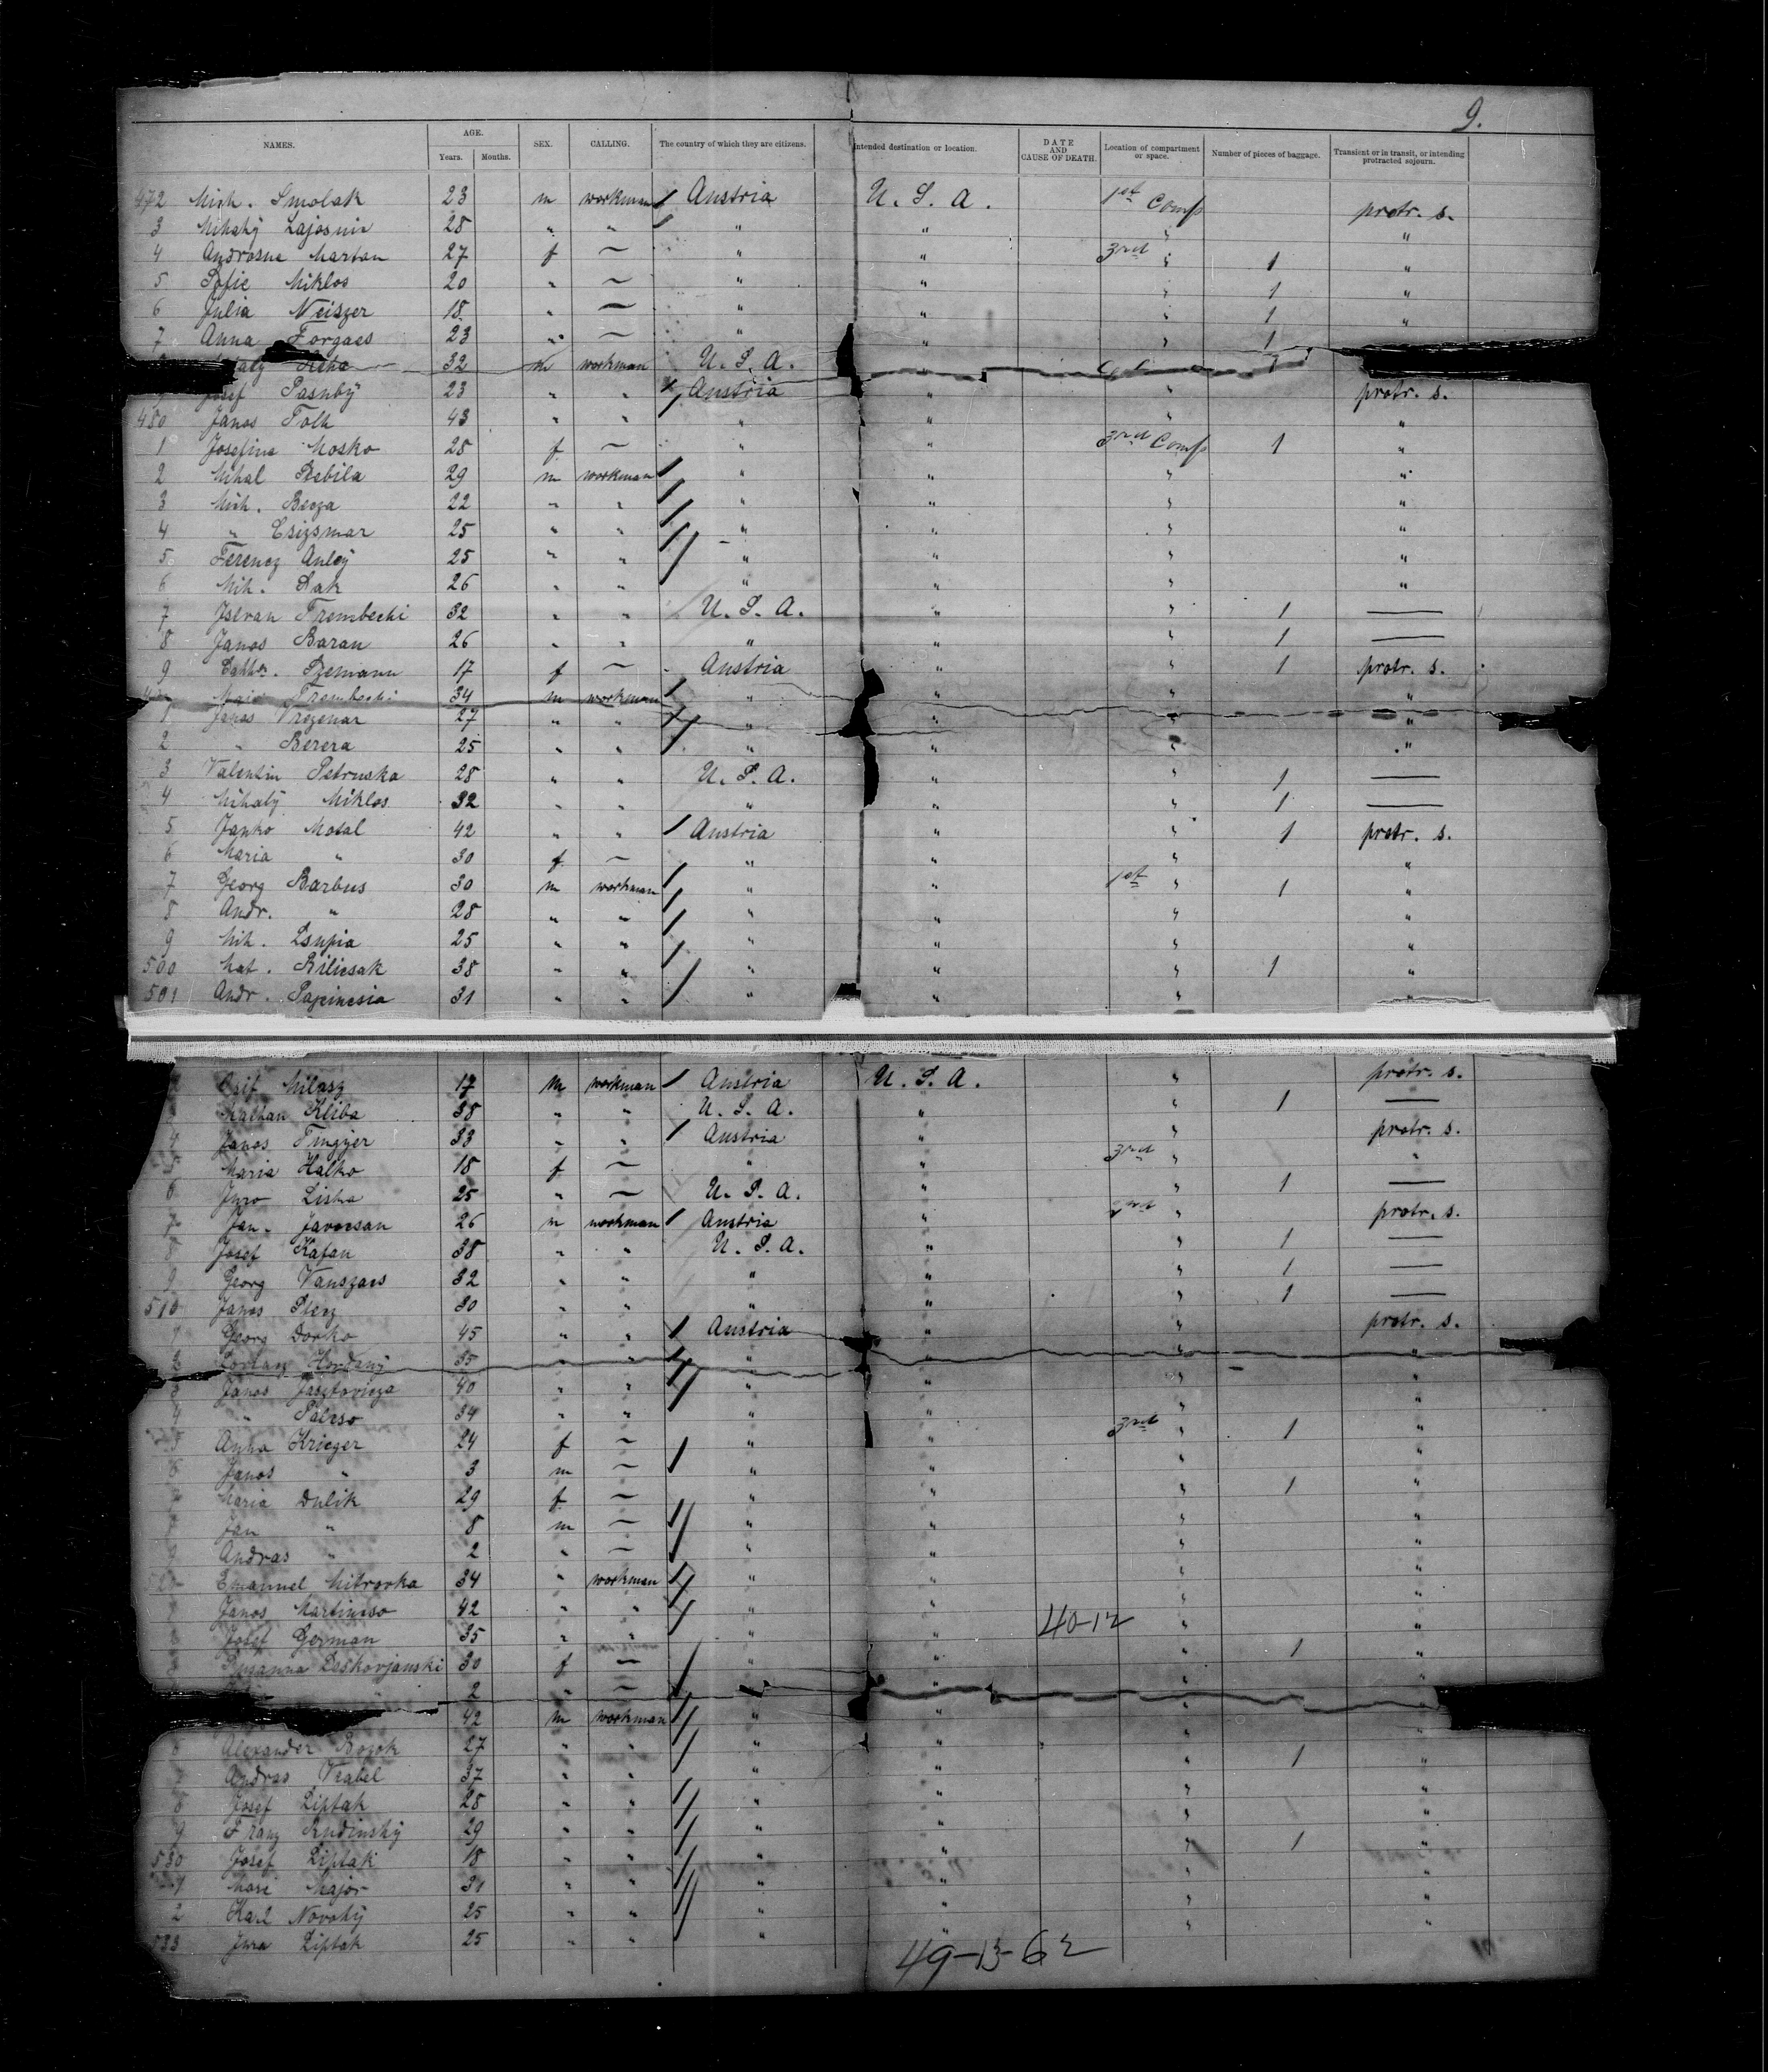 9.
NAMES. AGE. Years. Months. SEX. CALLING. The country of which they are citizens. Intended destination or location. DATE AND CAUSE OF DEATH. Location of compartment or space. Number of pieces of baggage. Transient or in transit, or intending protracted sojourn.
472 Mich. Smolak 23 m workman Austria U. S. A. 1st Comp protr. s.
3 Mihaly 28 " " " " " "
4 Androsne Marton 27 f — " " 3rd " 1 "
5 Sofie Miklos 20 " — " " " 1 "
6 Julia Neiszer 18 " — " " " 1 "
7 Anna Forgacs 23 " — " " " 1
32 m workman U. S. A. "
Josef Pasnby 23 " " Austria " " protr. s.
480 Janos Toth 43 " " " " " "
1 Josefine Mosko 28 f — " " 3rd Comp 1 "
2 Mihal Babila 29 m workman " " " "
3 Mich. Becza 22 " " " " " "
4 " Csizsmar 25 " " " " " "
5 Ferencz Anley 25 " " " " " "
6 Mih. Dak 26 " " " " " "
7 Istvan Trembecki 32 " " U. S. A. " " 1 —
8 Janos Baran 26 " " " " " 1 —
9 Cath. Szemann 17 f — Austria " " 1 protr. s.
Trembecki 34 m workman " " " "
1 Janos Vrezenar 27 " " " " " "
2 " Berera 25 " " " " " "
3 Valentin Petruska 28 " " U. S. A. " " 1 —
4 Mihaly Miklos 32 " " " " " 1 —
5 Janko Motal 42 " " Austria " " 1 protr. s.
6 Maria " 30 f — " " " "
7 Georg Barbus 30 m workman " " 1st " 1 "
8 Andr. " 28 " " " " " "
9 Mih. Dsupia 25 " " " " " "
500 Mat. Bilicsak 38 " " " " " 1 "
501 Andr. Papcincsia 31 " " " " " "
Milasz 17 m workman Austria U. S. A. " protr. s.
Kliba 38 " " U. S. A. " " 1 —
4 Janos Tingyer 33 " " Austria " " protr. s.
5 Maria Halko 18 f — " " 3rd " "
6 Juro Lisha 25 " — U. S. A. " " 1 —
7 Jan. Javorsan 26 m workman Austria " " protr. s.
8 Josef Katan 38 " " U. S. A. " " 1 —
9 Georg Vanszacs 32 " " " " " 1 —
510 Janos Stesz 30 " " " " " 1 —
1 Georg Dorko 45 " " Austria " " protr. s.
2 Hordany 35 " " " " " "
3 Janos Jasztovicza 40 " " " " " "
4 " Palcso 34 " " " " "
5 Anna Krieger 24 f — " " 3rd " 1 "
6 Janos " 3 m — " " " "
7 Maria Dulik 29 f — " " " 1 "
8 Jan " 8 m — " " " "
9 Andras " 2 " — " " " "
520 Emanuel Mitrovka 34 " workman " " " "
1 Janos Martincso 42 " " " " " "
2 Josef German 35 " " " " 40-12 " "
3 Susanna Laskovjanski 30 f — " " " 1 "
" 2 " — " " " "
42 m workman " " " "
6 Alexander Bozok 27 " " " " " "
7 Andras Vrabel 37 " " " " " 1 "
8 Josef Liptak 28 " " " " " "
9 Franz Rudinsky 29 " " " " " "
530 Josef Liptak 18 " " " " " 1 "
1 Mari Major 31 " " " " " "
2 Karl Novotny 25 " " " " " "
533 Jura Liptak 25 " " " " " "
49-13-62